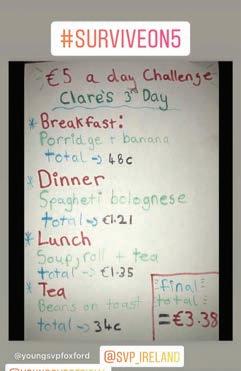 #SURVIVEON5
€5 a day Challenge
Clare's 3rd Day
* Breakfast:
Porridge + banana
total → 48c
* Dinner
Spagheti bolognese
total → €1.21
* Lunch
Soup, roll + tea
total → €1.35
* Tea
Beans on toast
total → 34c
final
total:
= €3.38
@youngsvpfoxford
@SVP_IRELAND